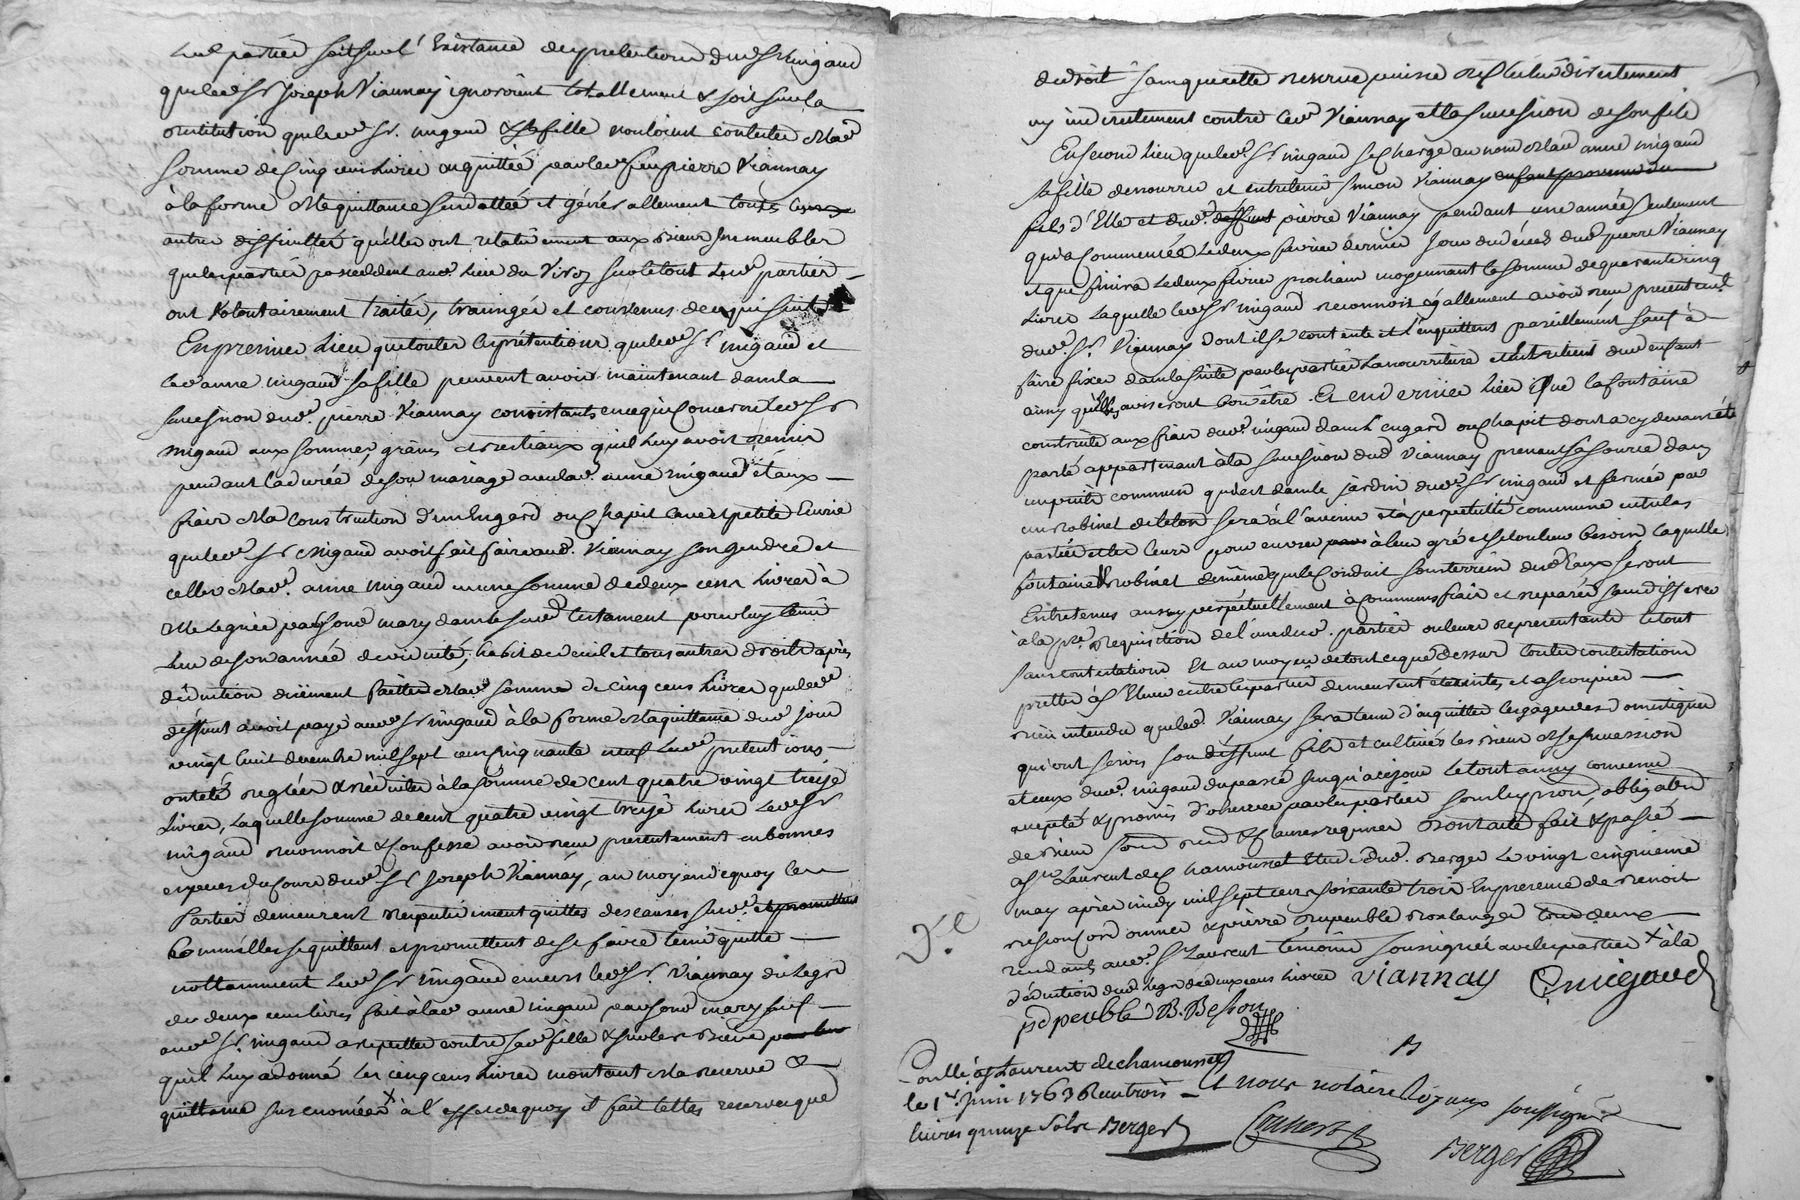 lesd. parties soit sur l'Existance des pretentions dud Sr migaud
que led Sr Joseph Viannay ignoroient totallement & soit sur la
restitution que led Sr. migaud & sa fille vouloint contester de lad
Somme de Cinq cens Livres acquittée par led feu pierre Viannay
à la forme de la quittance sus dattée et généralement toutes
autres diffficultés qu'elles ont relativement aux biens Immeubles
que les parties possedent aud. Lieu du Viroz sur le tout Lesd. parties
ont Volontairement traités, transigés et convenus de ce qui suit
En premier Lieu que toutes les prétentions que led Sr migaud et
lad anne migaud sa fille peuvent avoir maintenant dans la
succession dud. pierre Viannay consistants en ce qui Concerne led Sr
migaud aux sommes, grains et bestiaux qu'il luy avoit remis
pendant la durée de son mariage avec lad. anne migaud et aux
frais de la Construction d'un hengard ou Chapit cave et petite Ecurie
que led Sr Migaud avoit fait faire aud. Viannay son gendre et
celles de lad. anne migaud en une somme de deux cens Livres à
Elle Leguée par sond mary dans le susd. testament pour luy tenir
Lieu de son année de viduité, habit de deuil et tous autres droits après
déduction duement faitte de lad somme de cinq cens Livres que led
deffunt avoit payé aud Sr migaud à la forme de la quittance dud jour
vingt huit decembre mil sept cens Cinquante neuf Lesd pretentions
ont été reglées & réduites à la somme de cent quatre vingt treize
Livres, Laquelle somme de cent quatre vingt treize Livres Led Sr
migaud reconnoit & Confesse avoir reçu presentement en bonnes
especes du Cours dud Sr Joseph Viannay, au moyen de quoy les
Parties demeurent respectivement quittes des causes susd.
comme elles se quittent et promettent de se faire tenir quitte
nottamment Led Sr Migaud envers led Sr. Viannay du Legs
de deux cens livres fait à lad anne migaud par sond mary sauf
aud Sr. migaud a repetter contre sad fille & sur les biens
qu'il luy a donné les cinq cens Livres montant de la reserve &
quittance sus enoncée à l'effet de quoy il fait telles reserves que
de droit sans que cette reserve puisse refleter directement
ny indirectement contre led. Viannay et la succession de son fils
En second Lieu que led. Sr. migaud se charge au nom de lad anne migaud
sa fille de nourrir et entretenir Simon Viannay enfant provenu du
fils d'Elle et dud. deffunt pierre Viannay pendant une année seulement
qui a Commencée Le deux fevrier dernier Jour du décès dud pierre Viannay
et que finira Le deux fevrier prochain moyennant la somme de quarante cinq
Livres Laquelle led Sr migaud reconnoit également avoir reçu presentement
dud. Sr. Viannay dont il se contente et L'en quitte pareillement sauf à
faire fixer dans la suite par les parties La nourriture et Entretient dud enfant
ainsy qu'Elles aviseront bon être. Et en dernier Lieu Que la fontaine
construite aux frais dud. migaud dans L'engard ou Chapit dont a cy devant été
parlé appartenant à la succession dud Viannay prenant sa source dans
un puits commun qui est dans le jardin dud. Sr migaud et fermée par
un Robinet de leton sera à l'avenir et à perpetuité commune entre les
parties et les leurs pour en user à leur gré et selon leur besoin laquelle
fontaine & robinet de même que le Conduit souterrin desd Eaux seront
Entretenus aussy perpetuellement à Communs frais et reparés sans differer
à la pre. requisition de l'une desd. parties ou leurs representants le tout
sans contestation Et au moyen de tout ce que Dessus toutes contestations
prettes à s'Elever entre les parties demeurent éteintes et assoupies
bien intendu que led. Viannay sera tenu d'acquitter les gages des domestiques
qui ont servis son deffunt fils et cultivés les biens de sa succession
et ceux dud. migaud du passé jusqu'à ce jour Le tout ainsy convenu
accepté & promis d'observer par les parties sous luy pron, obligaōn
de biens Soūd renōd & Clauses requises dont acte fait & passé
à St Laurent de Chamousset Etude dud. Berger Le vingt cinquieme
may après midy mil sept cens soixante trois En presence de Benoit
Besson Cordonnier & pierre Depeuble Boulanger tous deux
residants aud St Laurent temoins Soussignés avec les parties à la
déduction dud. legs de deux cens Livres Viannay C. migaud
pdpeuble B. Besson
Conllé à St Laurent de chamousset
le 1er. Juin 1763 R un trois
livres quinze sols Berger
Et nous notaires Royaux soussignés
Berger